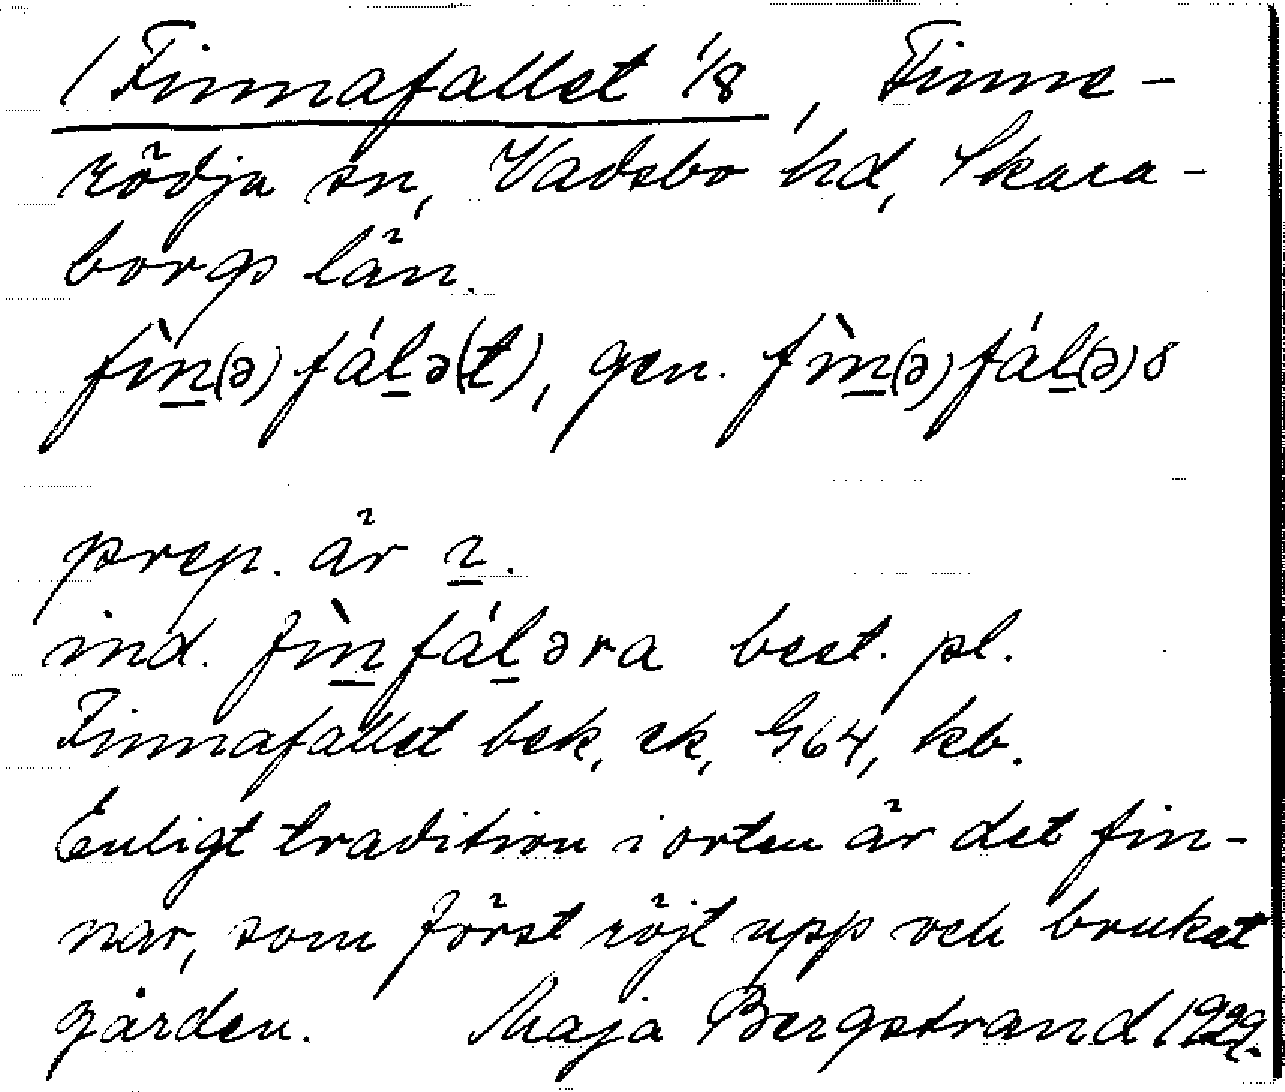 / Finnafallet 1/8, Finne-
rödja sn, Vadsbo hd, Skara-
borgs län.
fìn(ə)fálə(t), gen. fìn(ə)fál(ə)s
prep. är ı.
ind. fìnfáləra best. pl.
Finnafallet bek, ek, G64, kb.
Enligt tradition i orten är det fin-
nar, som först röjt upp och brukat
gården. Maja Bergstrand 1929.